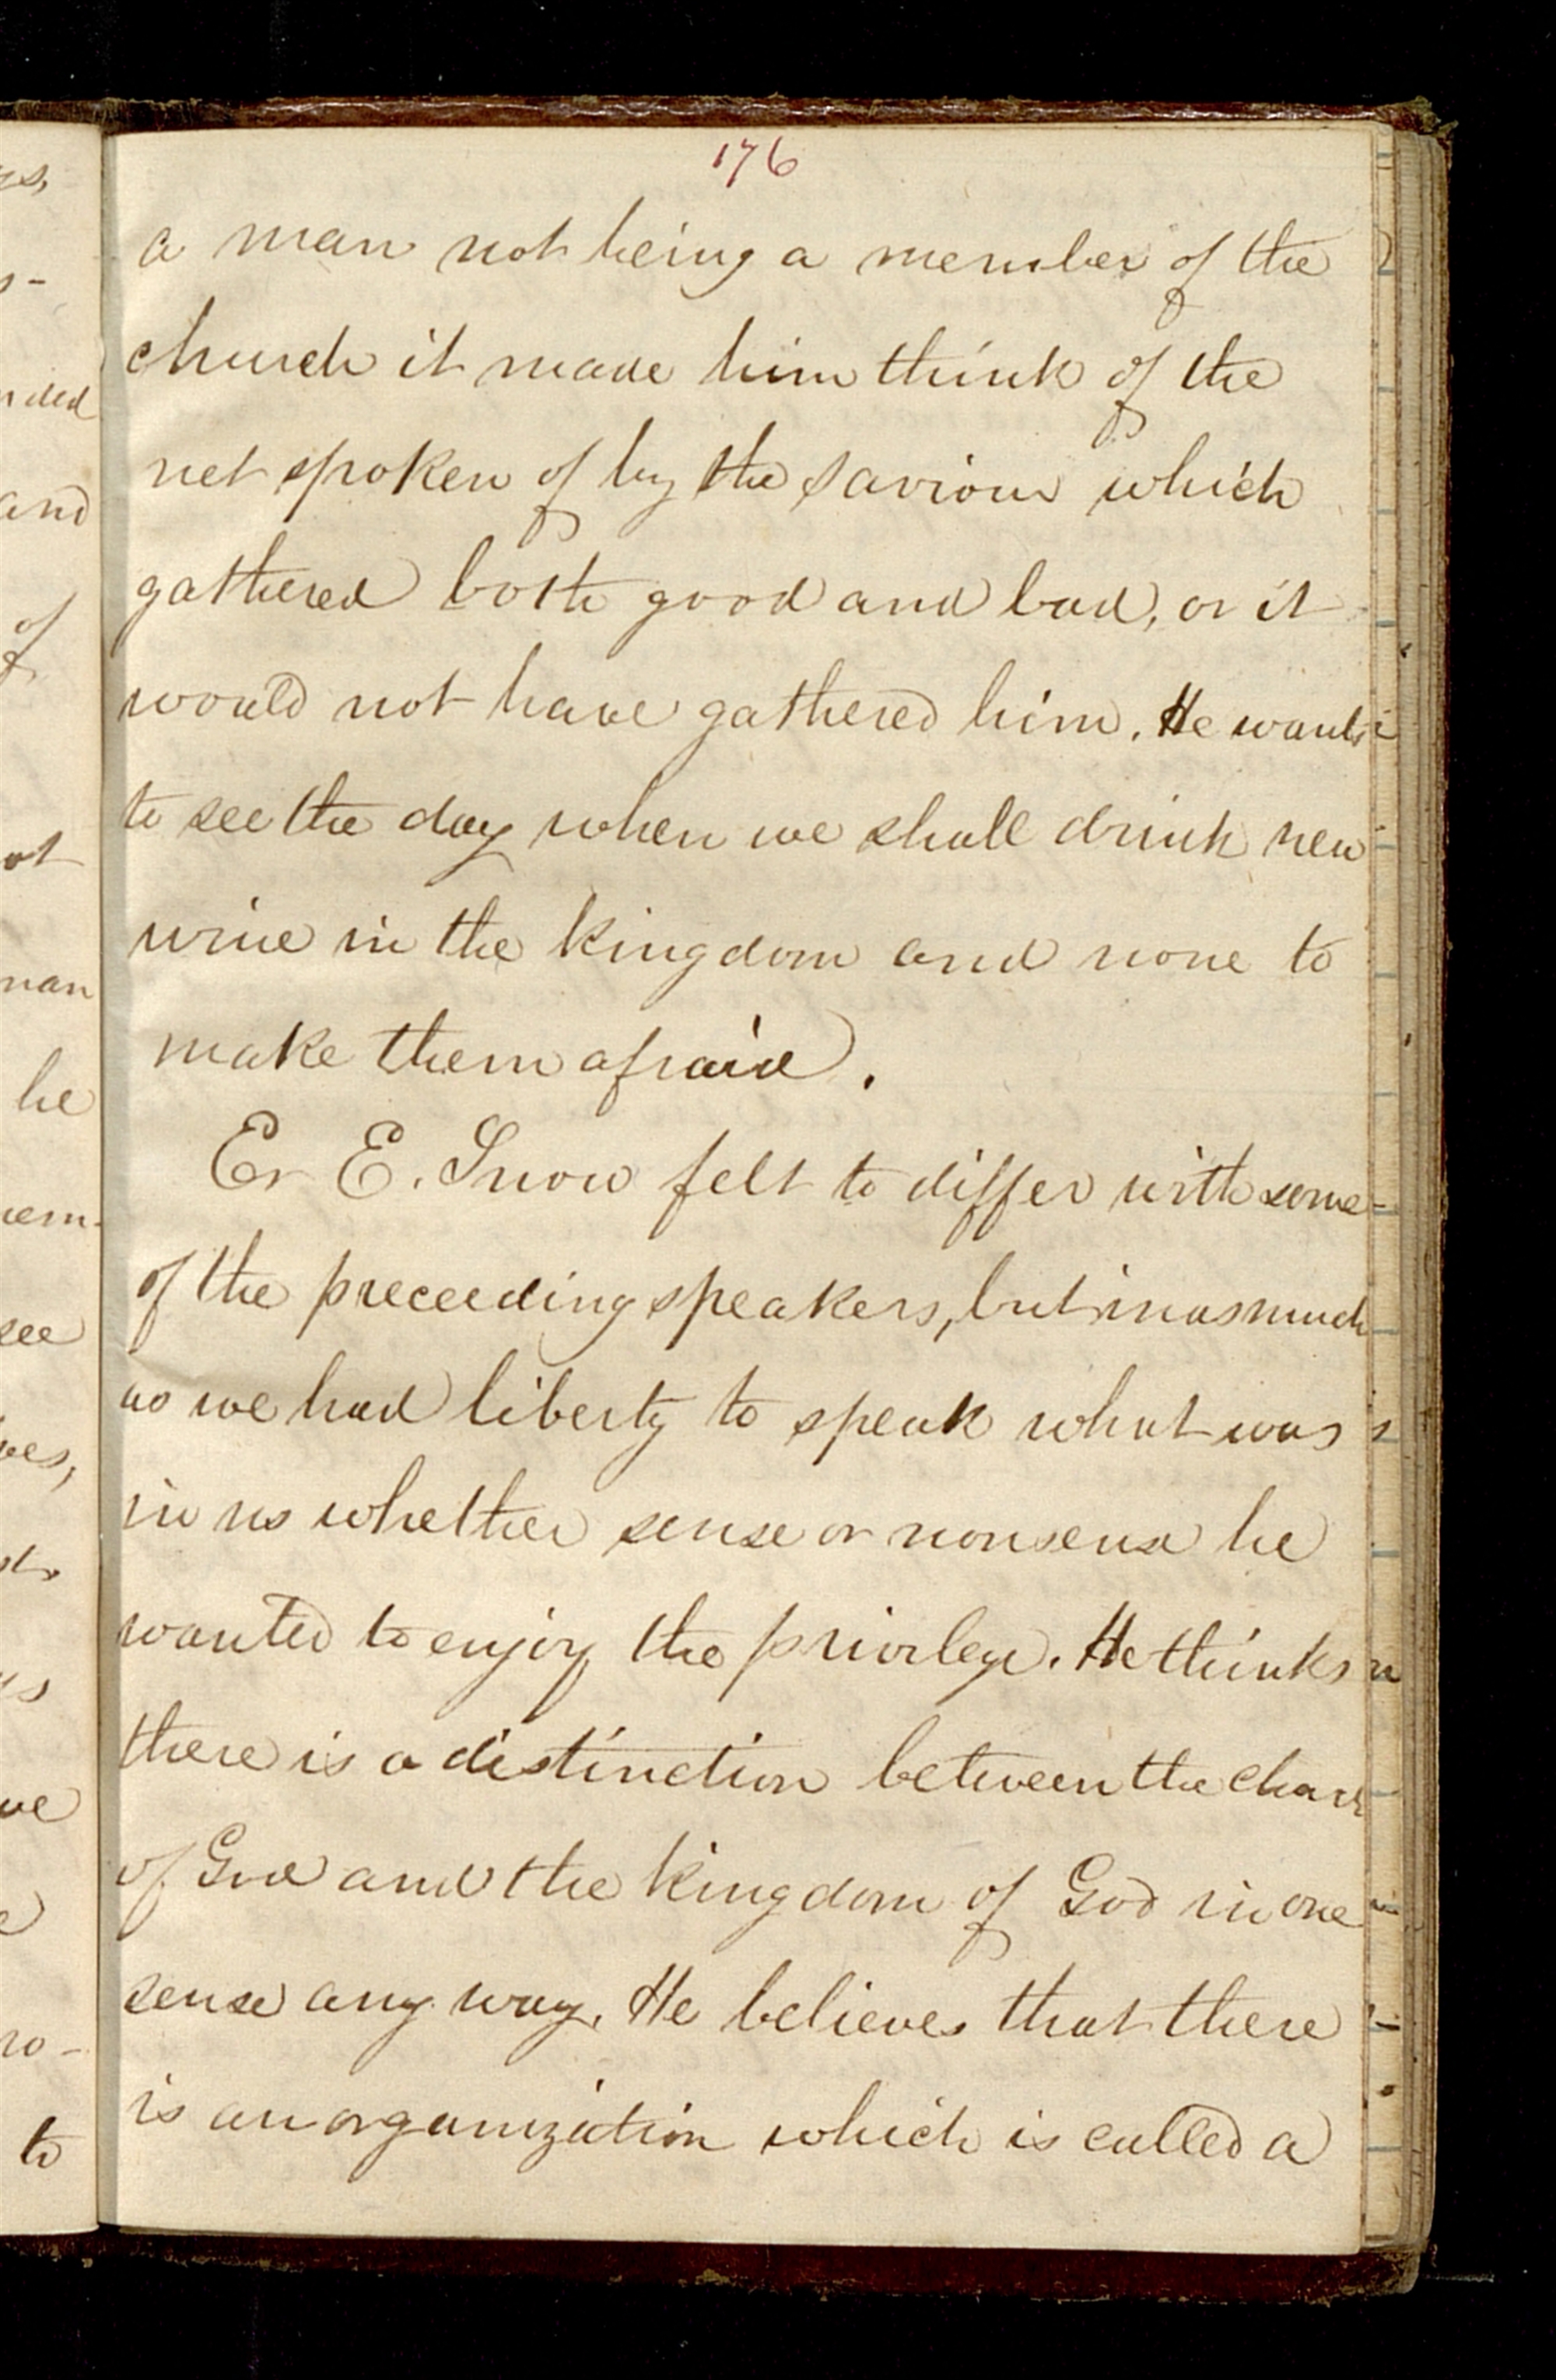 176
a man not being a member of the
church it made him think of the
net spoken of by the Saviour which
gathered both good and bad, or it
would not have gathered him. He wants
to see the day when we shall drink new
wine in the kingdom and none to
make them afraid.
Er E. Snow felt to differ with some
of the preceeding speakers, but inasmuch
as we had liberty to speak what was
in us whether sense or nonsense he
wanted to enjoy the privilege. He thinks
there is a distinction between the
of God and the kingdom of God in one
sense any way. He believes that there
is an organization which is called a